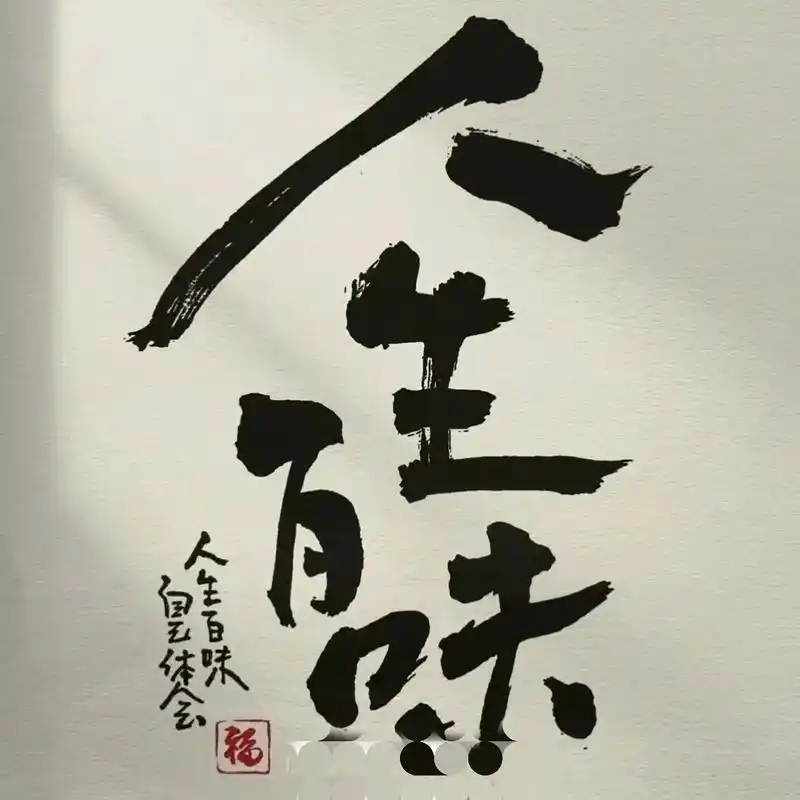 人生
百味
人生百味
自己体会
福